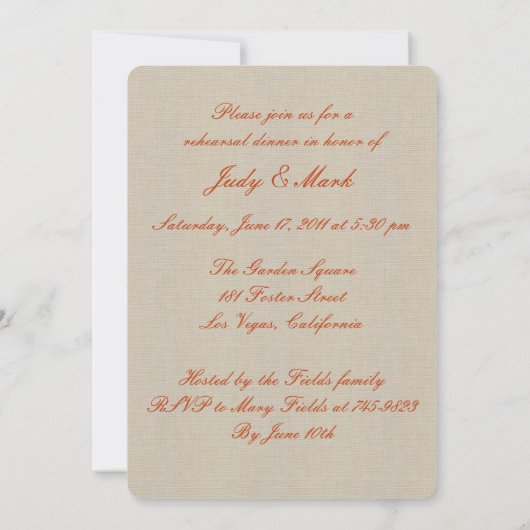 Please join us for a
rehearsal dinner in honor of
Judy & Mark
Saturday, June 17, 2011 at 5:30 pm
The Garden Square
181 Foster Street
Los Vegas, California
Hosted by the Fields family
RSVP to Mary Fields at 745-9823
By June 10th